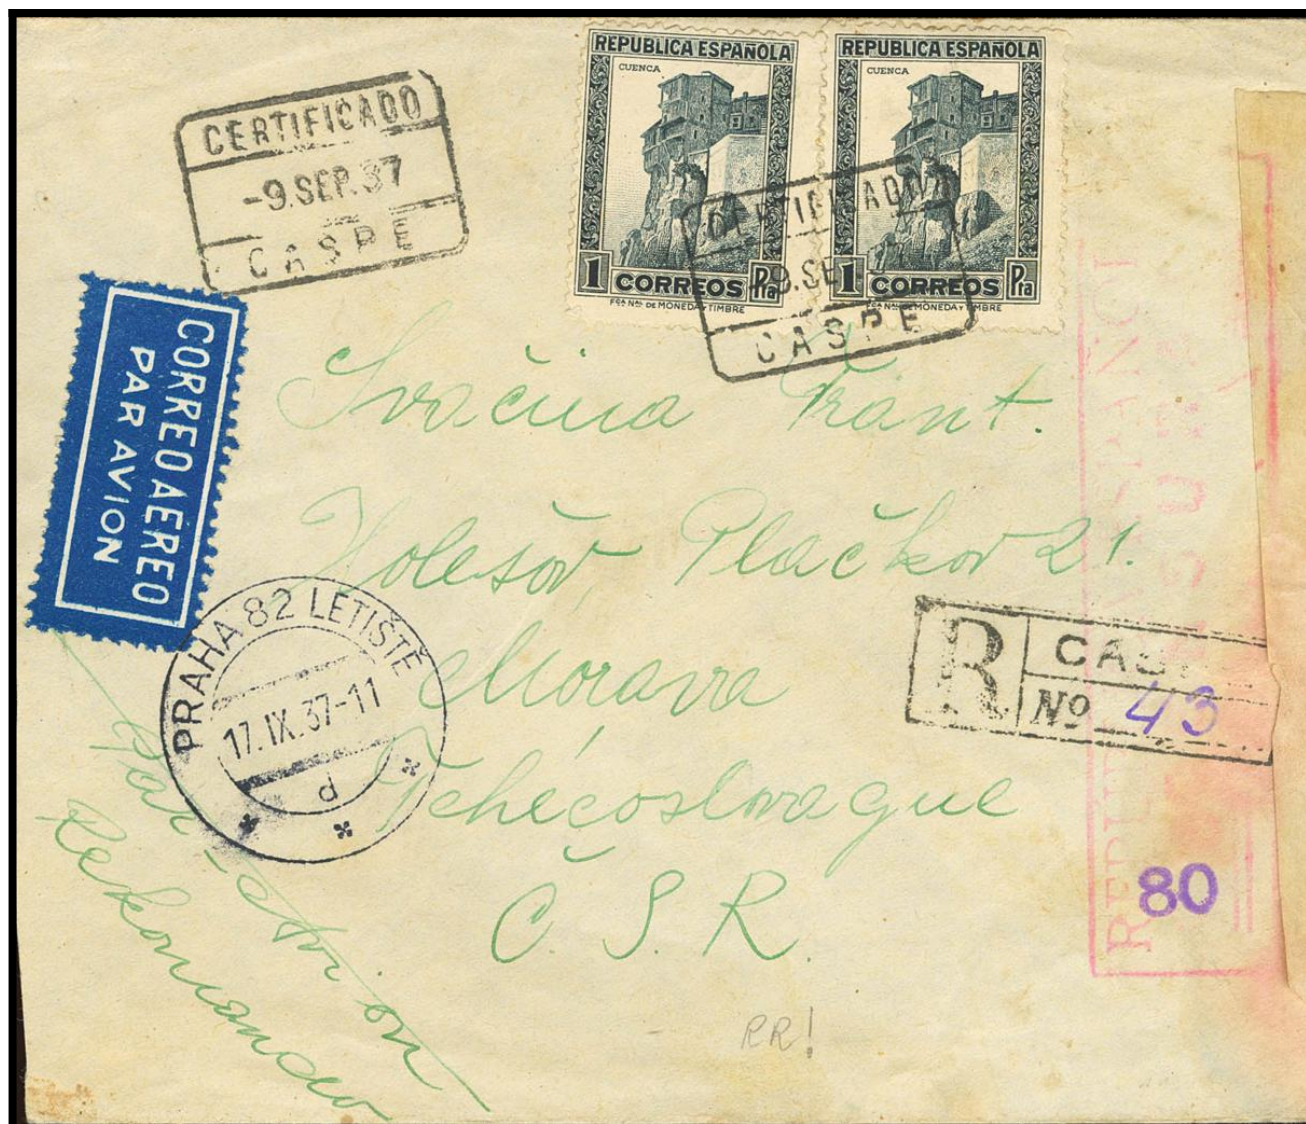 CERTIFICADO
-9.SEP.37
CASPE
REPUBLICA ESPAÑOLA
CUENCA
1 CORREOS Pta
Fca Nal DE MONEDA Y TIMBRE
REPUBLICA ESPAÑOLA
CUENCA
1 CORREOS Pta
Fca Nal DE MONEDA Y TIMBRE
CERTIFICADO
9.SE
CASPE
CORREO AEREO
PAR AVION
Svačina Frant.
Holešov Plačkov 21.
Morava
Tchécoslovaque
Č. S. R.
PRAHA 82 LETIŠTĚ
17.IX.37-11
d
R
CAS
Nº 43
80
Par Avion
Rekomando
RR!